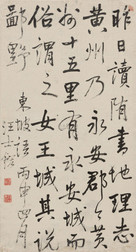 昨日讀隋書地理志
黃州乃永安郡今黃
州十五里有永安城
俗謂之女王城其說
鄙野
東坡語丙申四月
汪士